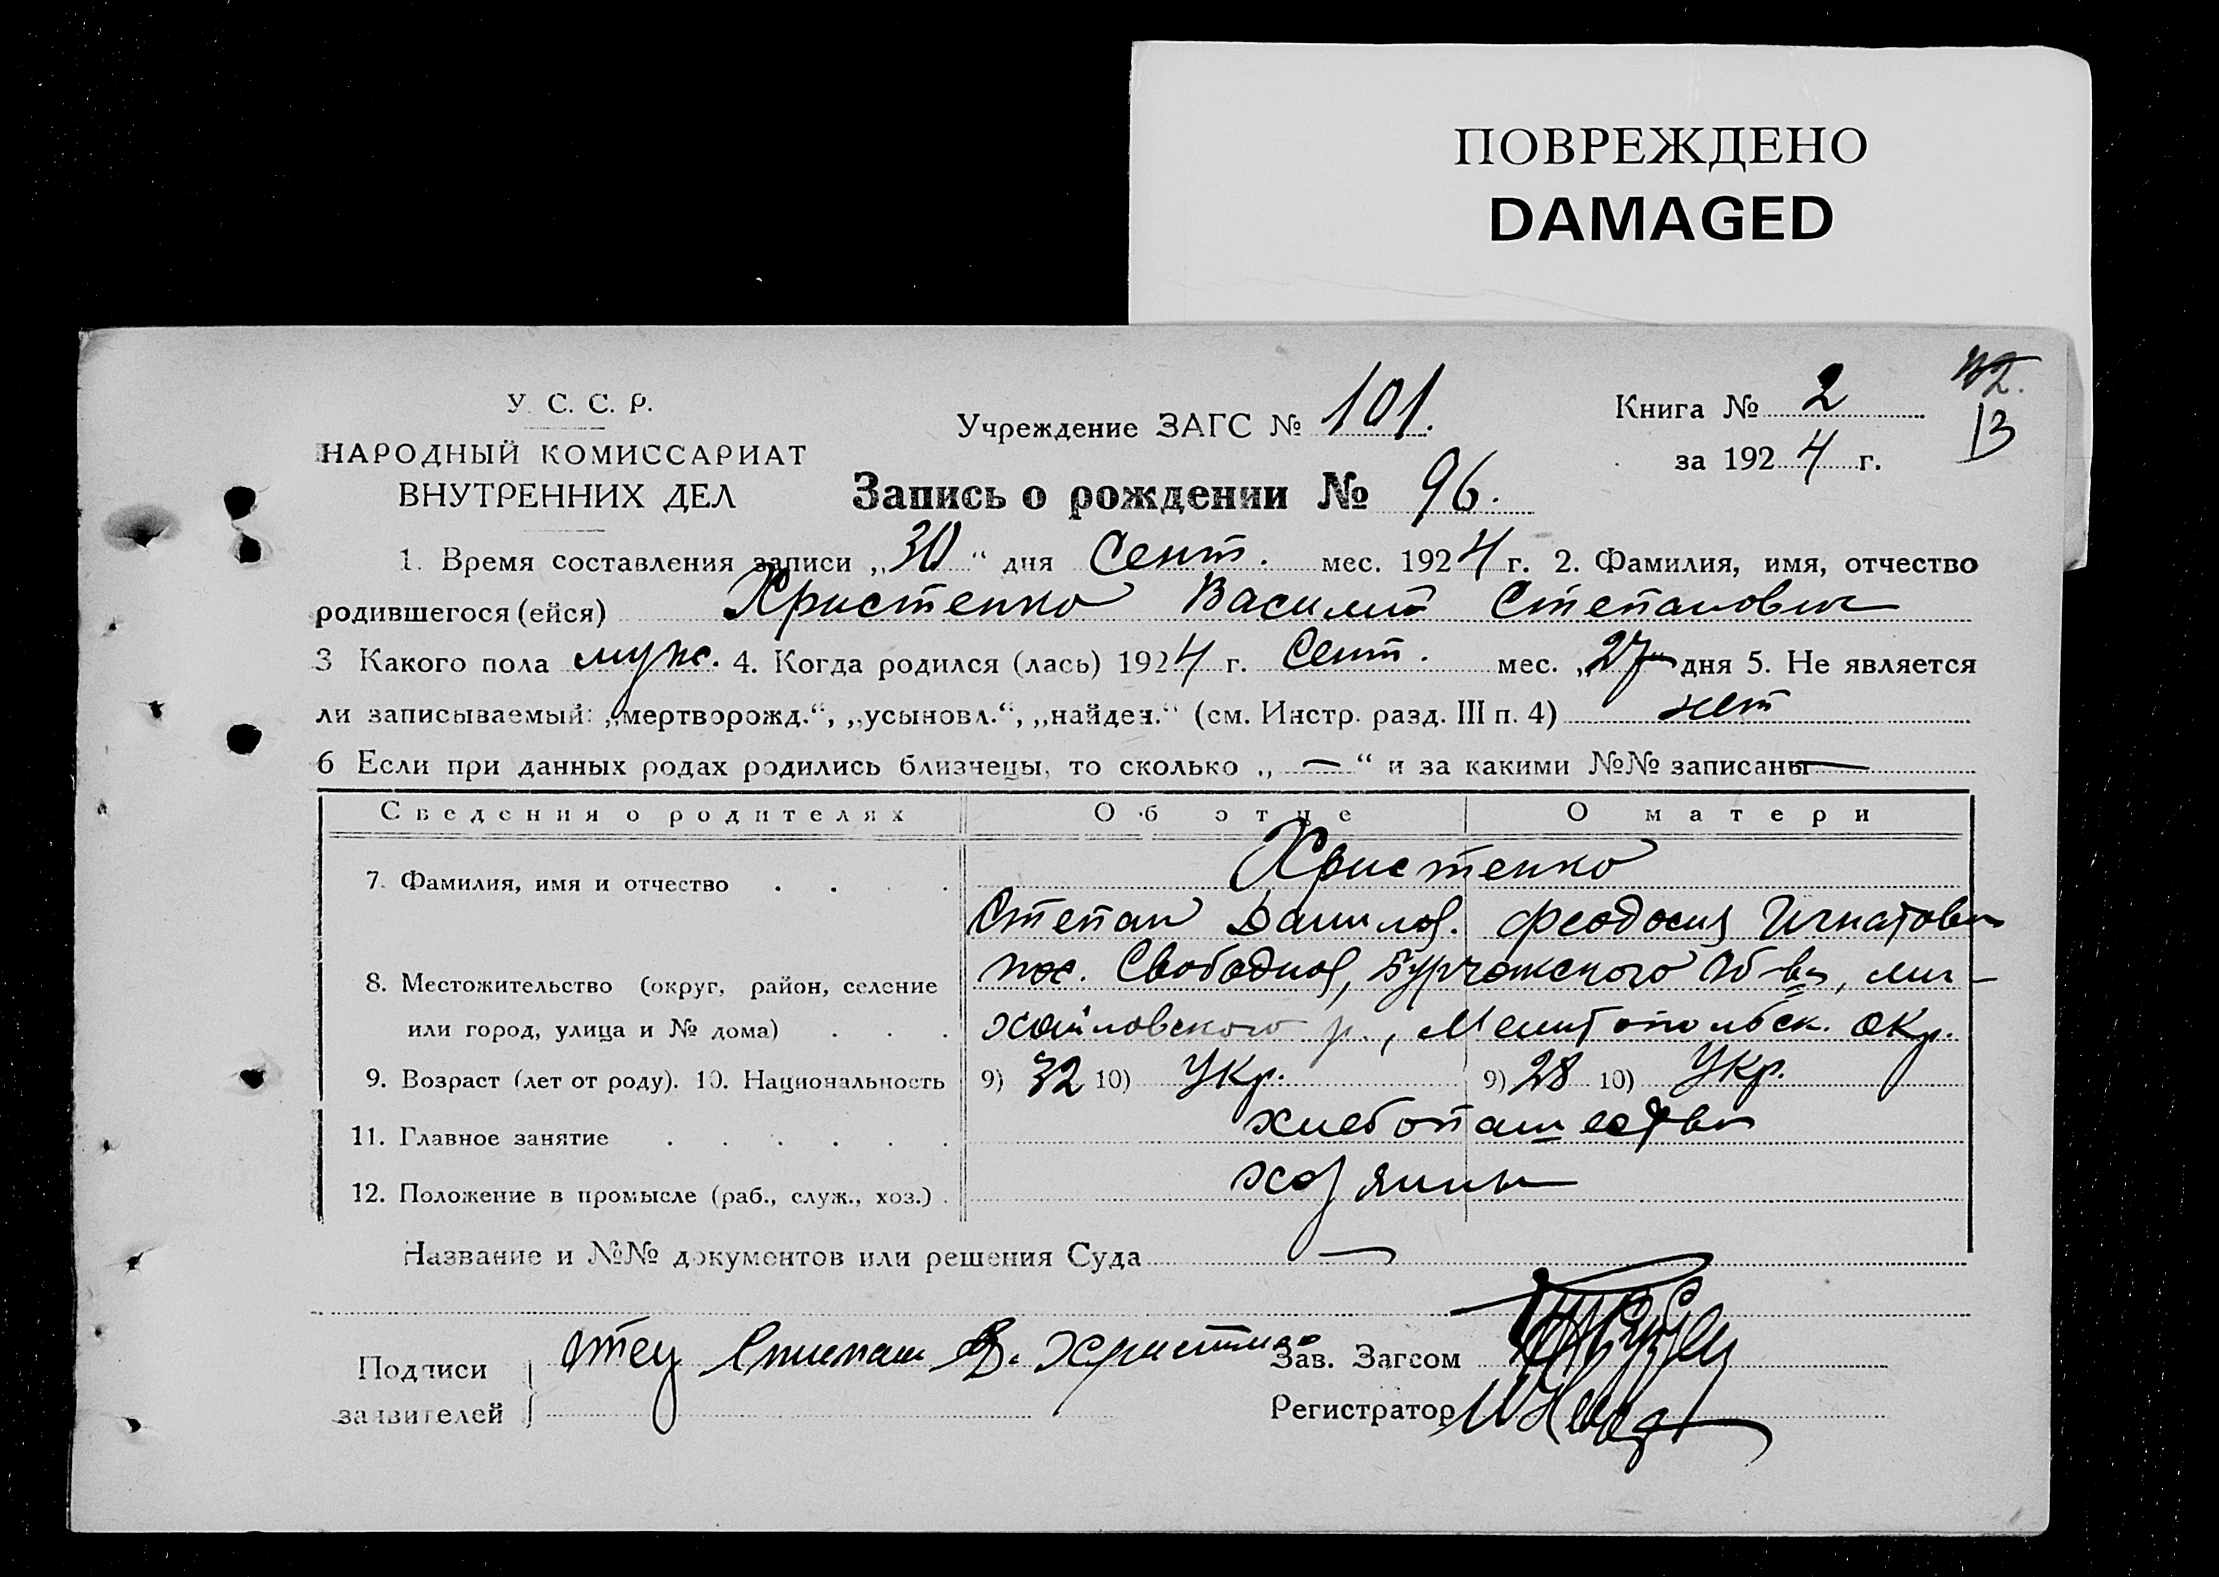 ПОВРЕЖДЕНО
DAMAGED
У. С. С. Р.
НАРОДНЫЙ КОМИССАРИАТ
ВНУТРЕННИХ ДЕЛ
Учреждение ЗАГС № 101.
Книга № 2
за 1924 г.
13
Запись о рождении № 96.
1. Время составления записи „30“ дня Сент. мес. 1924 г. 2. Фамилия, имя, отчество
родившегося (ейся) Христенко Василий Степанович
3 Какого пола муж. 4. Когда родился (лась) 1924 г. Сент. мес. „27“ дня 5. Не является
ли записываемый: „мертворожд.“, „усыновл.“, „найден.“ (см. Инстр. разд. III п. 4) нет
6 Если при данных родах родились близнецы, то сколько „—“ и за какими №№ записаны —
Сведения о родителях Об отце О матери
7. Фамилия, имя и отчество . . . . Христенко
Степан Данилов. Феодосия Игнатовн
8. Местожительство (округ, район, селение пос. Свободная, Бурчакского Об-ва, Ми-
или город, улица и № дома) . . . хайловского р., Мелитопольск. окр.
9. Возраст (лет от роду). 10. Национальность 9) 32 10) Укр. 9) 28 10) Укр.
11. Главное занятие . . . . . . хлебопашество
12. Положение в промысле (раб., служ., хоз.) . хозяины
Название и №№ документов или решения Суда —
Подписи отец Степан Д. Зав. Загсом
заявителей Регистратор